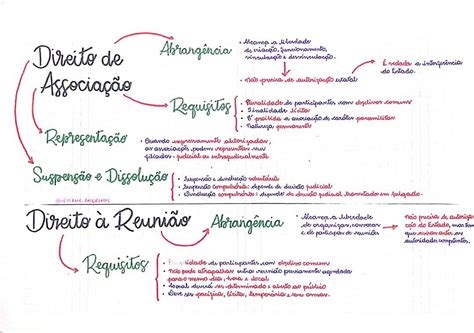 Direito de
Associação
Abrangência
• Alcança a liberdade
de criação, funcionamento,
vinculação e desvinculação.
• Não precisa de autorização estatal
É vedada a interferência
do Estado.
Requisitos
• Pluralidade de participantes com objetivo comum
• Finalidade lícita
• É proibida a associação de caráter paramilitar
• Natureza permanente
Representação
• Quando expressamente autorizadas,
as associações podem representar seus
filiados judicial ou extrajudicialmente
Suspensão e Dissolução
• Suspensão e dissolução voluntária
• Suspensão compulsória: depende de decisão judicial
• Dissolução compulsória: depende de decisão judicial transitada em julgado.
Direito à Reunião
Abrangência
• Alcança a liberdade
de organizar, convocar
e de participar de reunião
Não precisa de autoriza-
ção do Estado, mas tem
que existir aviso às
autoridades competentes.
Requisitos
• Pluralidade de participantes com objetivo comum
• Não pode atrapalhar outra reunião previamente agendada
para o mesmo dia, hora e local
• Local deverá ser determinado e aberto ao público
• Deve ser pacífica, lícita, temporária e sem armas.